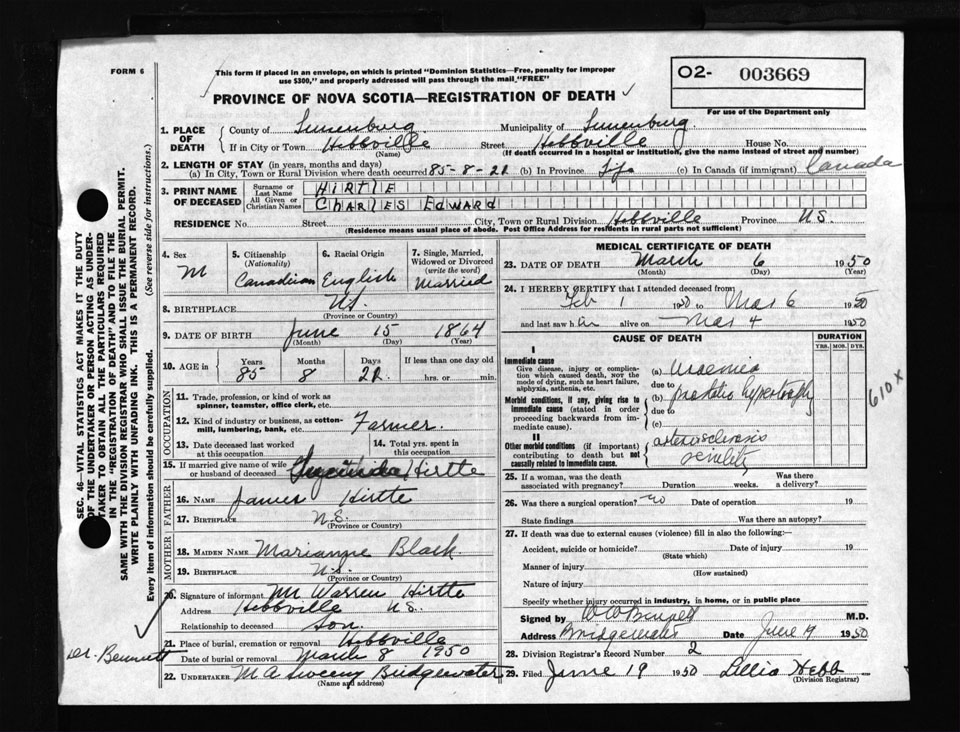 FORM 6
This form if placed in an envelope, on which is printed "Dominion Statistics—Free, penalty for improper
use $300," and properly addressed will pass through the mail, "FREE"
O2- 003669
For use of the Department only
PROVINCE OF NOVA SCOTIA—REGISTRATION OF DEATH
1. PLACE OF DEATH
County of Lunenburg Municipality of Lunenburg
If in City or Town Hebbville Street Hebbville House No.
(Name) (If death occurred in a hospital or institution, give the name instead of street and number)
2. LENGTH OF STAY (in years, months and days)
(a) In City, Town or Rural Division where death occurred 85-8-21 (b) In Province Life (c) In Canada (if immigrant) Canada
3. PRINT NAME OF DECEASED
Surname or Last Name HIRTLE
All Given or Christian Names CHARLES EDWARD
RESIDENCE No. Street City, Town or Rural Division Hebbville Province N.S.
(Residence means usual place of abode. Post Office Address for residents in rural parts not sufficient)
4. Sex M
5. Citizenship (Nationality) Canadian
6. Racial Origin English
7. Single, Married, Widowed or Divorced (write the word) Married
8. BIRTHPLACE N.S.
(Province or Country)
9. DATE OF BIRTH June 15 1864
(Month) (Day) (Year)
10. AGE in Years 85 Months 8 Days 21 If less than one day old hrs. or min.
OCCUPATION
11. Trade, profession, or kind of work as spinner, teamster, office clerk, etc.
12. Kind of industry or business, as cotton-mill, lumbering, bank, etc. Farmer.
13. Date deceased last worked at this occupation
14. Total yrs. spent in this occupation
15. If married give name of wife or husband of deceased Hirtle
FATHER
16. NAME James Hirtle
17. BIRTHPLACE N.S.
(Province or Country)
MOTHER
18. MAIDEN NAME Marianne Black
19. BIRTHPLACE N.S.
(Province or Country)
20. Signature of informant Warren Hirtle
Address Hebbville N.S.
Relationship to deceased Son.
21. Place of burial, cremation or removal Hebbville
Date of burial or removal March 8 1950
22. UNDERTAKER M A Sweeny Bridgewater
(Name and address)
Dr. Bennett
MEDICAL CERTIFICATE OF DEATH
23. DATE OF DEATH March 6 1950
(Month) (Day) (Year)
24. I HEREBY CERTIFY that I attended deceased from
Feb 1 1950 to Mar 6 1950
and last saw him alive on Mar 4 1950
CAUSE OF DEATH
DURATION
YRS. MOS. DYS.
I
Immediate cause
Give disease, injury or complication which caused death, NOT the mode of dying, such as heart failure, asphyxia, asthenia, etc.
(a) Uraemia
due to
Morbid conditions, if any, giving rise to immediate cause (stated in order proceeding backwards from immediate cause).
(b) prostatic hypertrophy
due to
(c)
II
Other morbid conditions (if important) contributing to death but not causally related to immediate cause.
arteriosclerosis
senility
610X
25. If a woman, was the death associated with pregnancy? Duration weeks. Was there a delivery?
26. Was there a surgical operation? no Date of operation 19
State findings Was there an autopsy?
27. If death was due to external causes (violence) fill in also the following:
Accident, suicide or homicide? Date of injury 19
(State which)
Manner of injury
(How sustained)
Nature of injury
Specify whether injury occurred in industry, in home, or in public place
Signed by Bennett M.D.
Address Bridgewater Date June 19 1950
28. Division Registrar's Record Number 2
29. Filed June 19 1950 Hebb
(Division Registrar)
SEC. 46—VITAL STATISTICS ACT MAKES IT THE DUTY
OF THE UNDERTAKER OR PERSON ACTING AS UNDER-
TAKER TO OBTAIN ALL THE PARTICULARS REQUIRED
IN THE "REGISTRATION OF DEATH" AND TO FILE THE
SAME WITH THE DIVISION REGISTRAR WHO SHALL ISSUE THE BURIAL PERMIT.
WRITE PLAINLY WITH UNFADING INK. THIS IS A PERMANENT RECORD.
Every item of information should be carefully supplied. (See reverse side for instructions.)